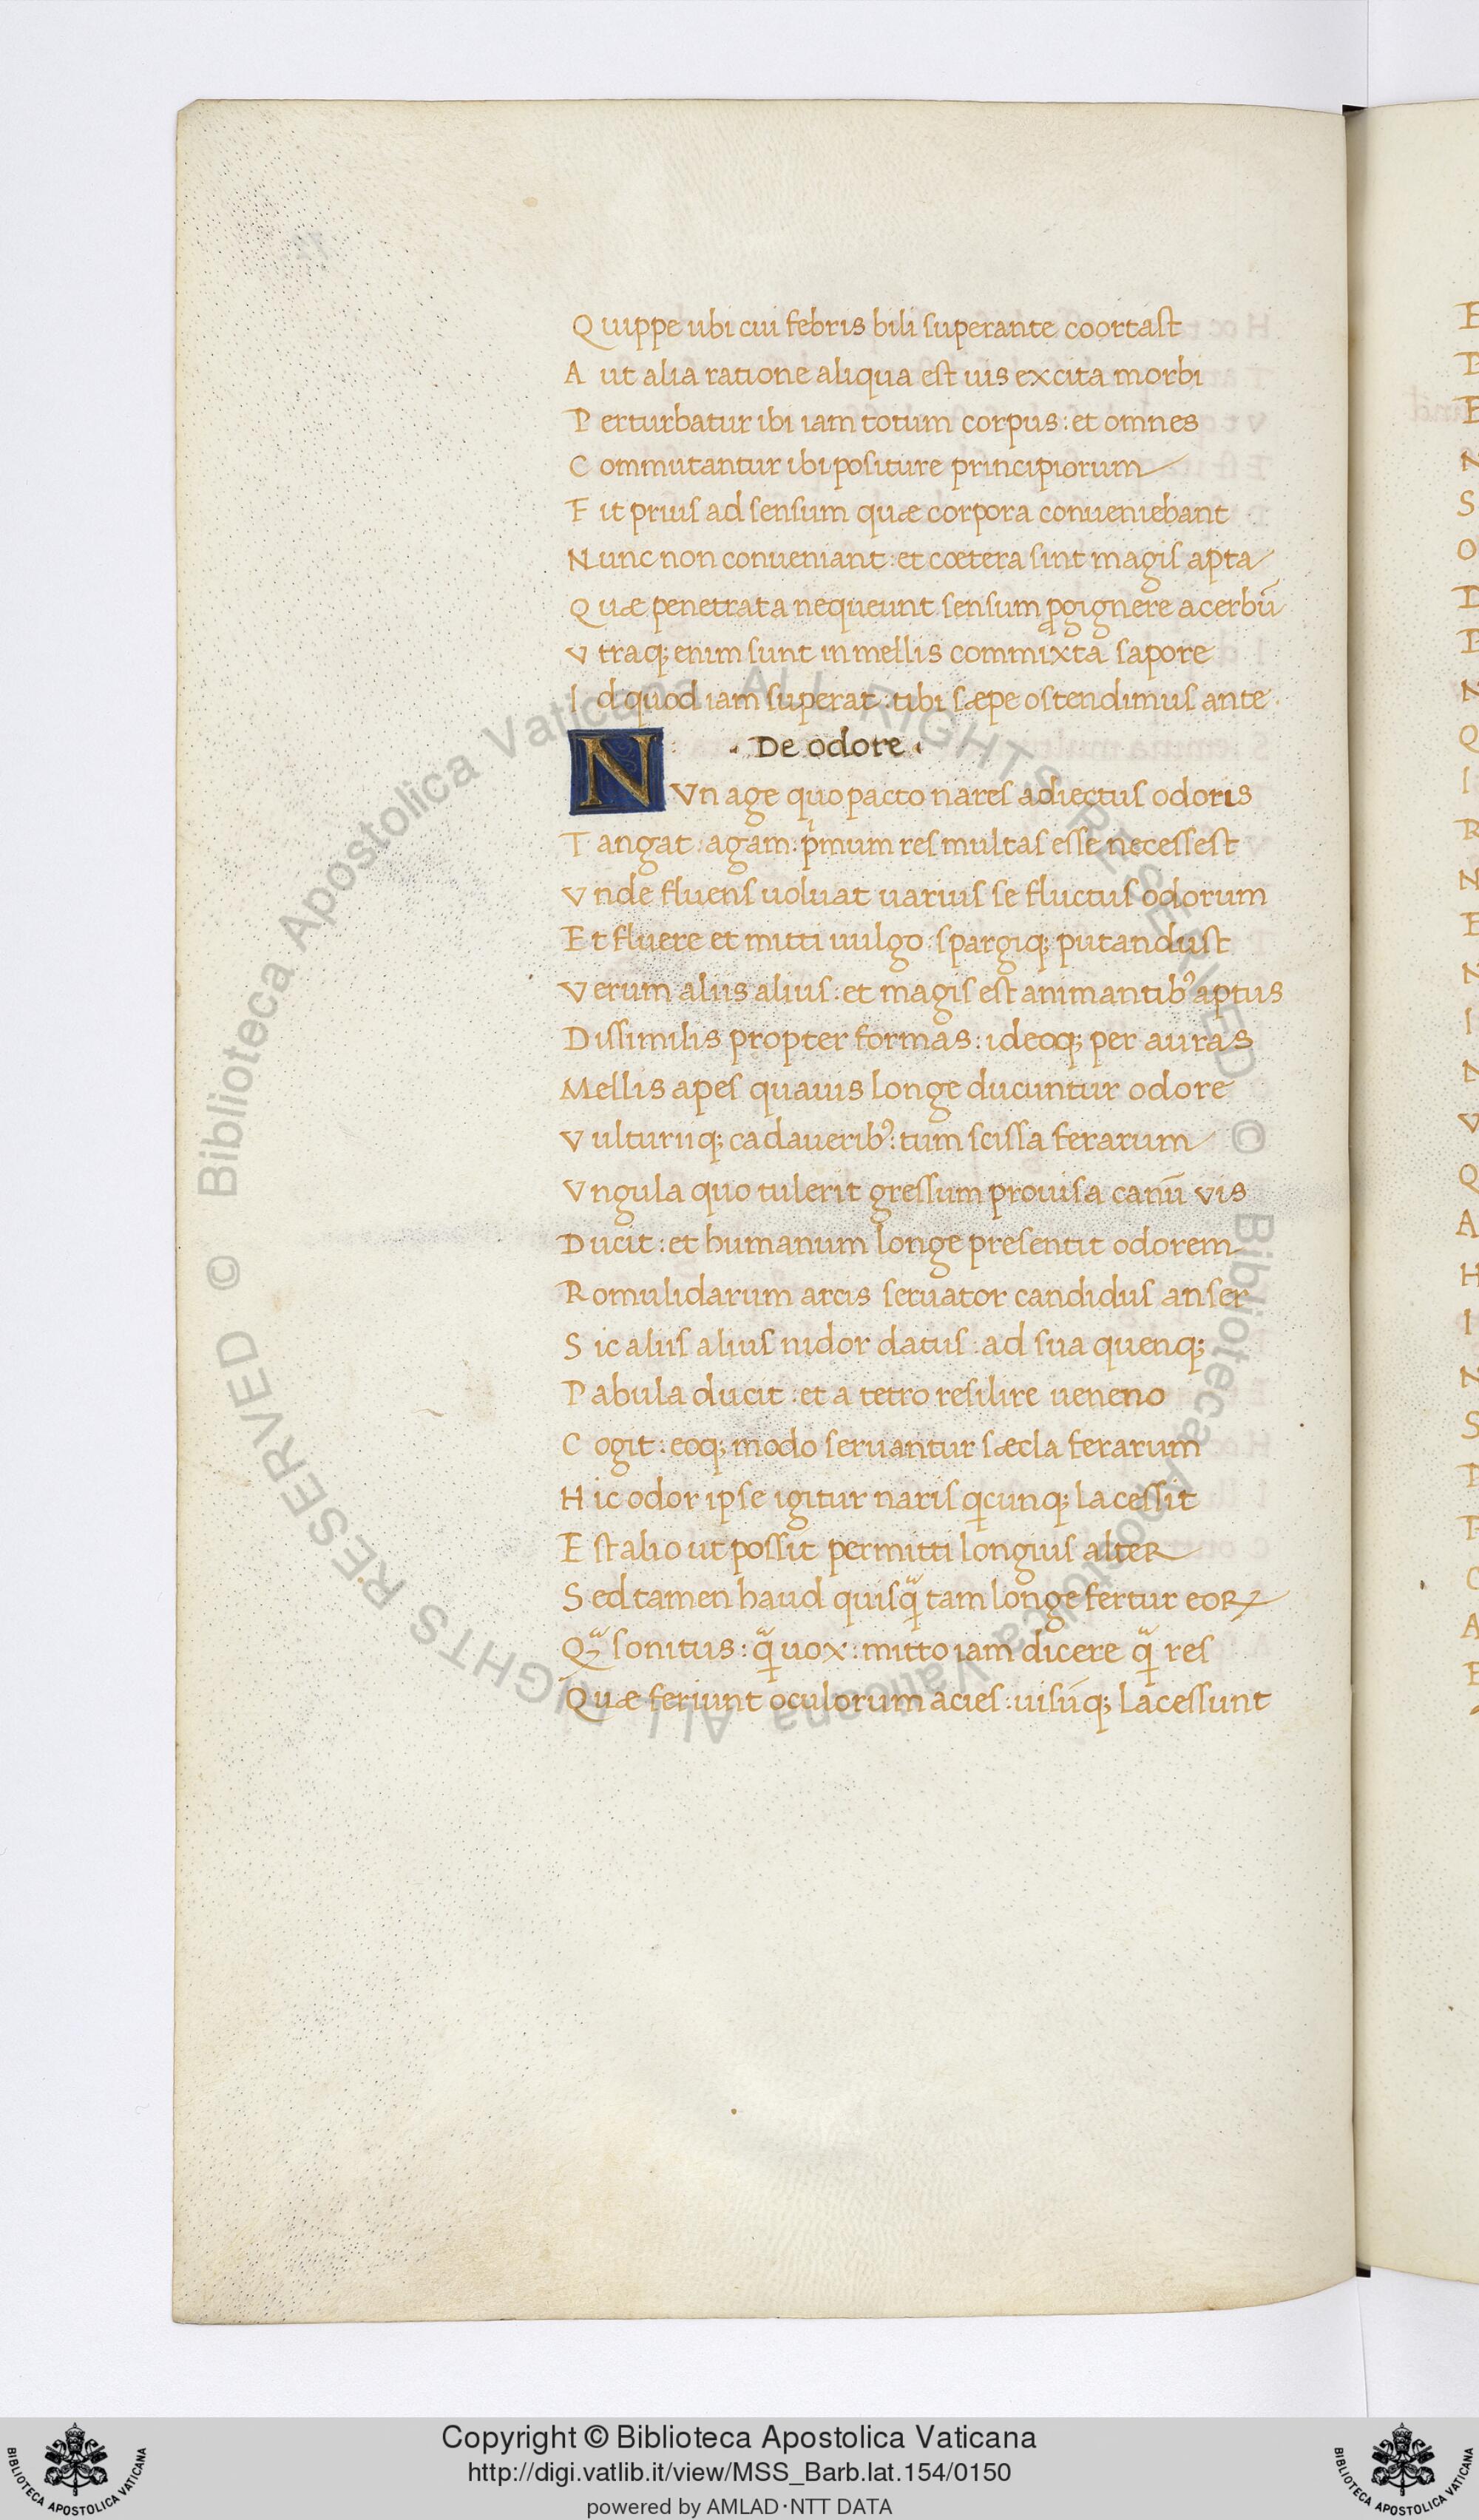 Quippe ubi cui febris bili superante coortast
Aut alia ratione aliqua est uis excita morbi
Perturbatur ibi iam totum corpus: et omnes
Commutantur ibi positure principiorum
Fit prius ad sensum quæ corpora conueniebant
Nunc non conueniant: et cœtera sint magis apta
Quæ penetrata nequeunt sensum ꝓgignere acerbū
Vtraq; enim sunt in mellis commixta sapore
Id quod iam superat: tibi sæpe ostendimus ante
· De odore ·
NVn age quo pacto nares adiectus odoris
Tangat: agam: pͥmum res multas esse necessest
Vnde fluens uoluat uarius se fluctus odorum
Et fluere et mitti uulgo: spargiq; putandust
Verum aliis alius: et magis est animantibꝰ aptus
Dissimilis propter formas: ideoq; per auras
Mellis apes quauis longe ducuntur odore
Vulturiiq; cadaueribꝰ: tum scissa ferarum
Vngula quo tulerit gressum prouisa canū vis
Ducit: et humanum longe presentit odorem
Romulidarum arcis seruator candidus anser
Sic aliis alius nidor datus: ad sua quenq;
Pabula ducit: et a tetro resilire ueneno
Cogit: eoq; modo seruantur sæcla ferarum
Hic odor ipse igitur naris qcunq; lacessit
Est alio ut possit permitti longius alter
Sed tamen haud quisqᷓ tam longe fertur eoꝝ
Qᷓ sonitus: qᷓ uox: mitto iam dicere qᷓ res
Quæ feriunt oculorum acies: uisūq; lacessunt
© Biblioteca Apostolica Vaticana ALL RIGHTS RESERVED © Biblioteca Apostolica Vaticana ALL RIGHTS RESERVED
Copyright © Biblioteca Apostolica Vaticana
http://digi.vatlib.it/view/MSS_Barb.lat.154/0150
powered by AMLAD·NTT DATA
BIBLIOTECA APOSTOLICA VATICANA
BIBLIOTECA APOSTOLICA VATICANA